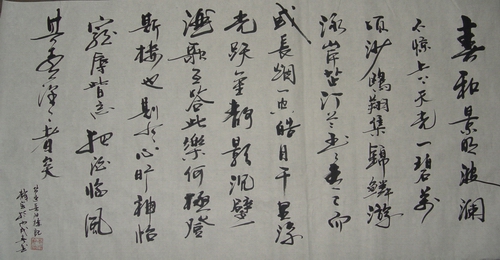 春和景明波瀾
不驚上下天光一碧万
頃沙鷗翔集錦鱗游
泳岸芷汀兰郁郁青青而
或長烟一空皓月千里浮
光躍金靜影沉璧
漁歌互答此樂何極登
斯樓也則有心旷神怡
寵辱皆忘把酒临風
其喜洋洋者矣